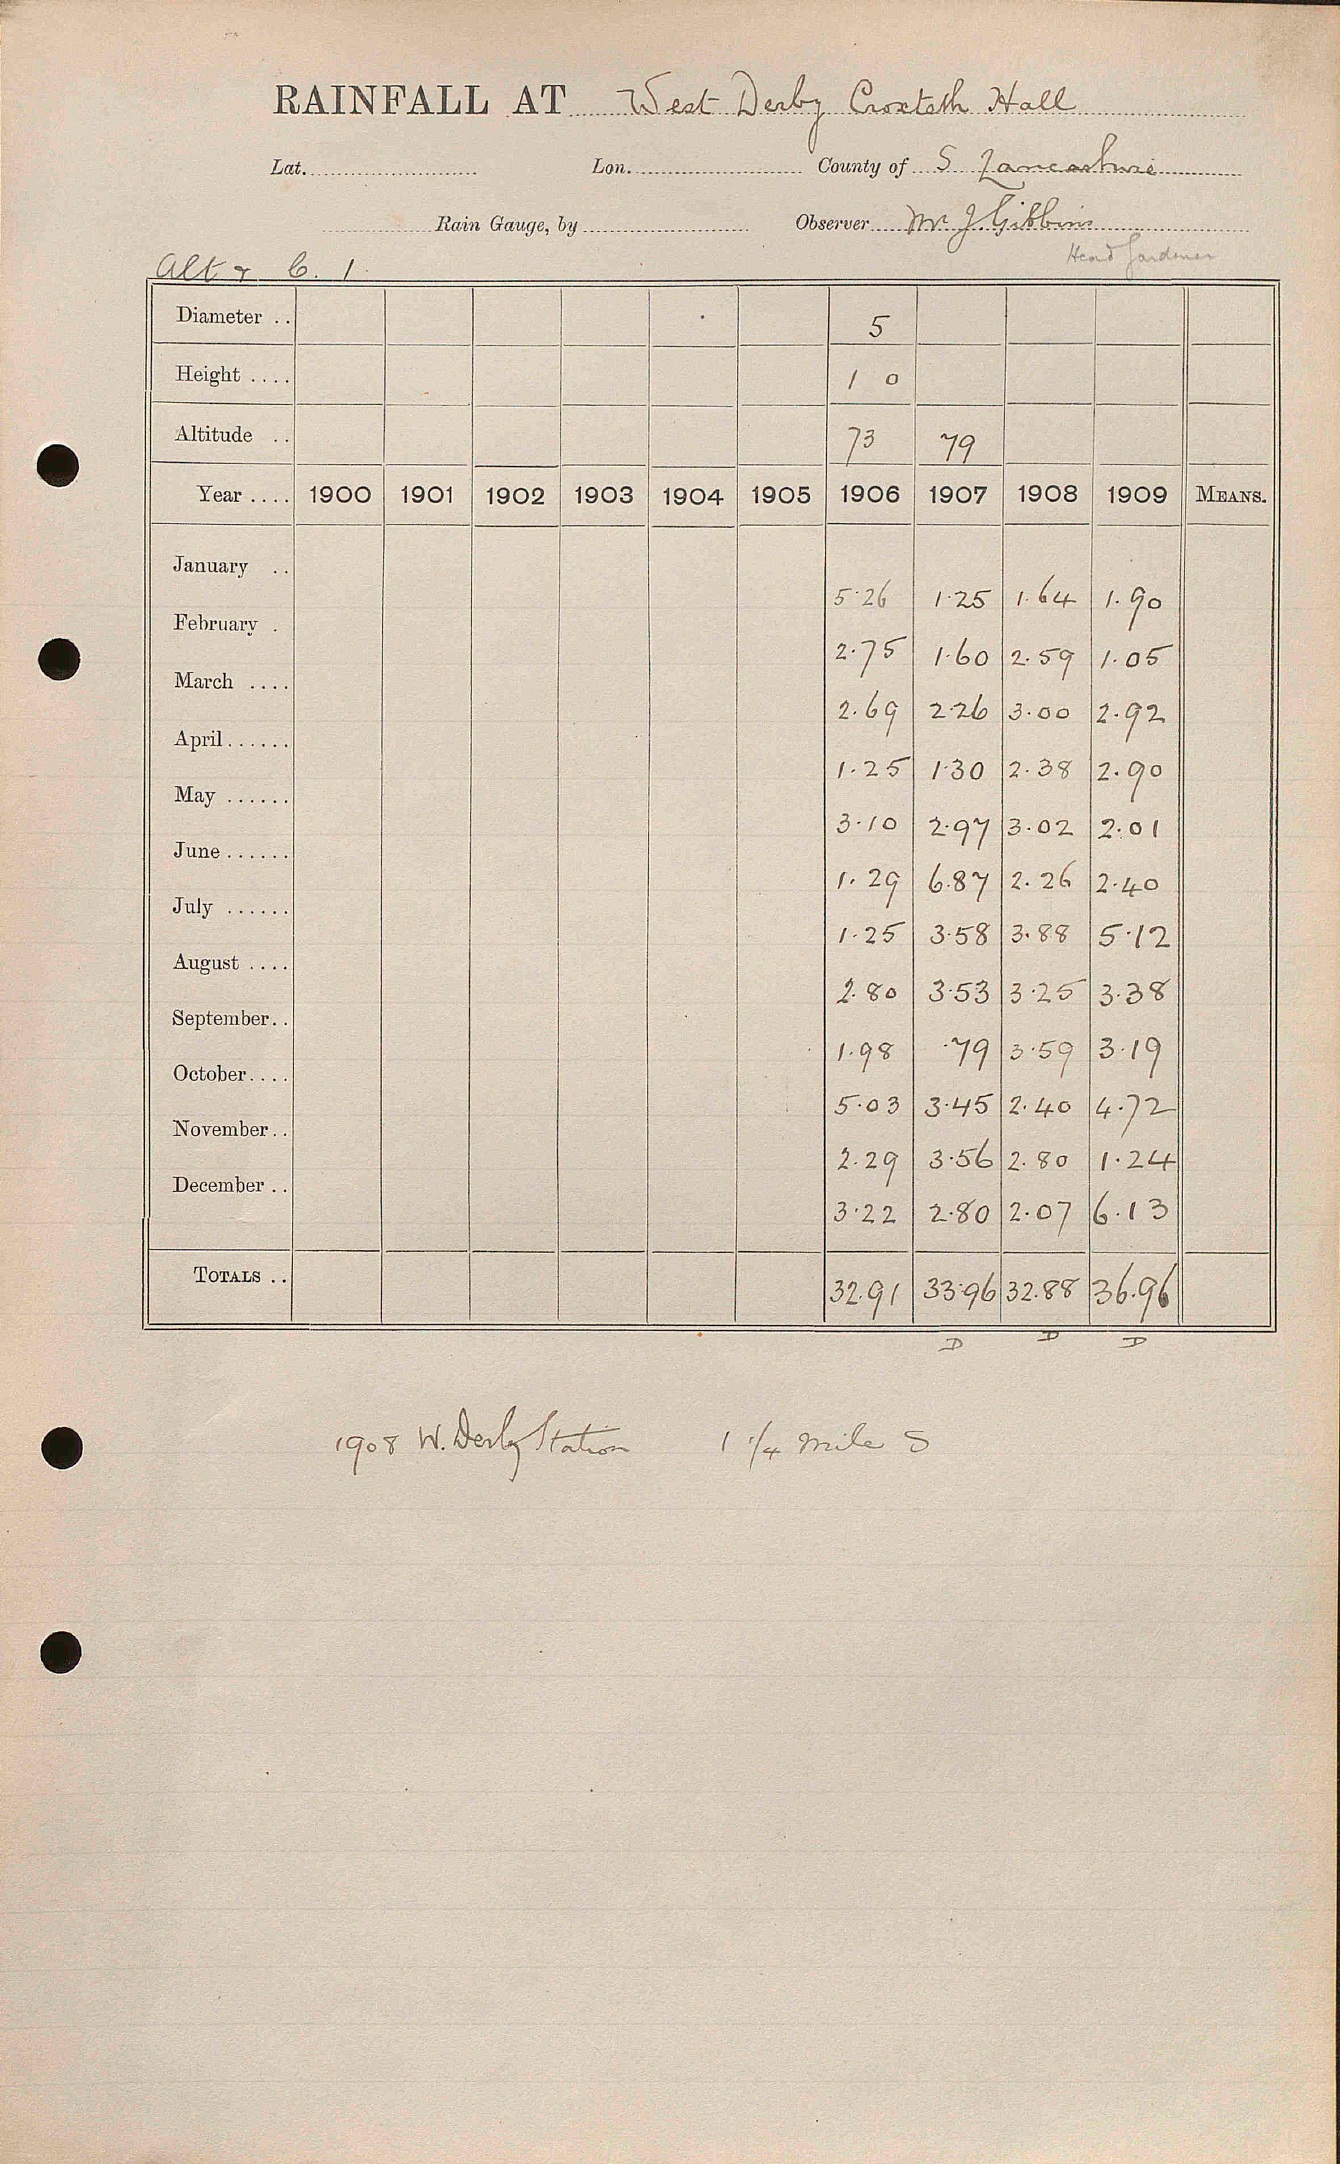 RAINFALL AT West Derby Croxteth Hall
Lat. Lon. County of S. Lancashire
Rain Gauge, by Observer Mr J. Gibbins
Head Gardener
Alt & C. 1
Diameter .. 5
Height .... 1 0
Altitude .. 73 79
Year .... 1900 1901 1902 1903 1904 1905 1906 1907 1908 1909 MEANS.
January .. 5.26 1.25 1.64 1.90
February . 2.75 1.60 2.59 1.05
March .... 2.69 2.26 3.00 2.92
April...... 1.25 1.30 2.38 2.90
May ...... 3.10 2.97 3.02 2.01
June...... 1.29 6.87 2.26 2.40
July ...... 1.25 3.58 3.88 5.12
August .... 2.80 3.53 3.25 3.38
September.. 1.98 .79 3.59 3.19
October.... 5.03 3.45 2.40 4.72
November.. 2.29 3.56 2.80 1.24
December .. 3.22 2.80 2.07 6.13
TOTALS .. 32.91 33.96 32.88 36.96
D D D
1908 W. Derby Station 1 1/4 mile S